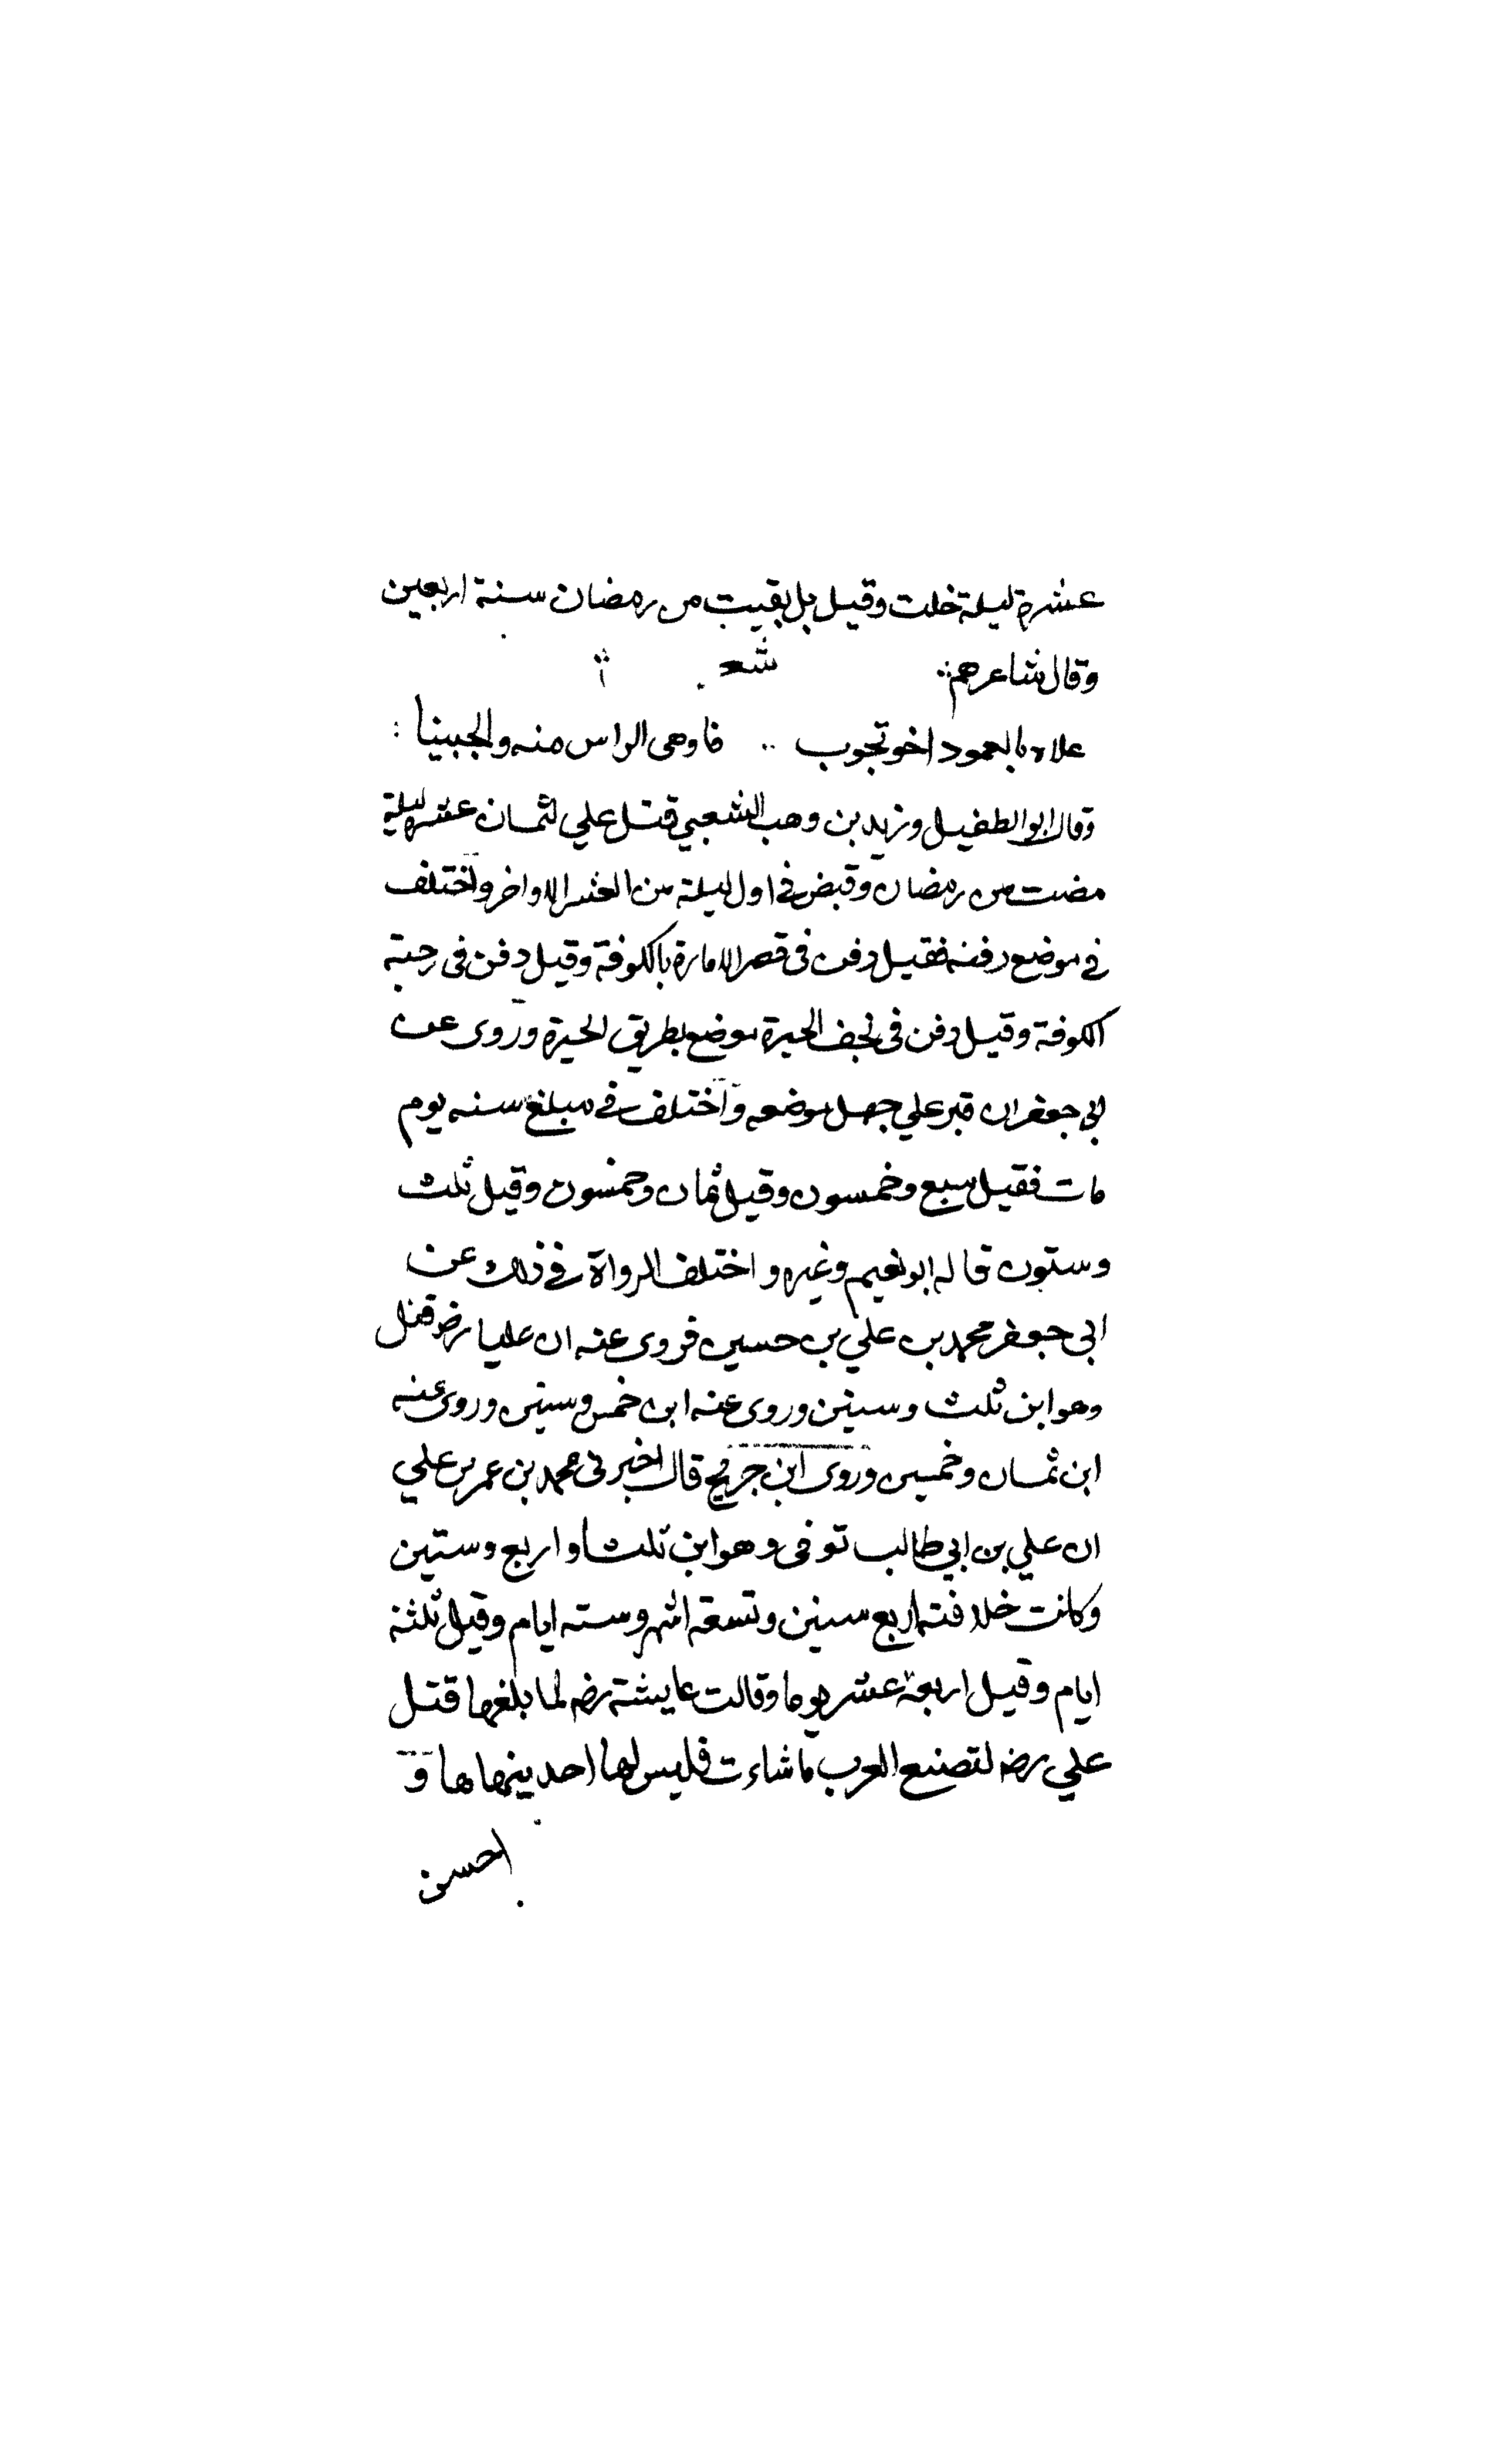 عشرة ليلة خلت وقيل بل بقيت من رمضان سنة اربعين
وقال شاعرهم شعر
علاه بالعمود اخو تجوب فاوهى الراس منه والجبينا
وقال ابو الطفيل وزيد بن وهب الشعبي قتل علي لثمان عشر ليلة
مضت من رمضان وقبض في اول ليلة من العشر الاواخر واختلف
في موضع دفنه فقيل دفن في قصر الامارة بالكوفة وقيل دفن في رحبة
الكوفة وقيل دفن في نجف الحيرة موضع بطريق الحيرة وروى عن
ابي جعفر ان قبر علي جهل موضعه واختلف في مبلغ سنه يوم
مات فقيل سبع وخمسون وقيل ثمان وخمسون وقيل ثلث
وستون قاله ابو نعيم وغيره واختلف الرواة في ذلك عن
ابي جعفر محمد بن علي بن حسين فروى عنه ان عليا رضه قتل
وهو ابن ثلث وستين وروى عنه ابن خمس وستين وروى عنه
ابن ثمان وخمسين وروى ابن جريج قال اخبرنى محمد بن عمر بن علي
ان علي بن ابي طالب توفى وهو ابن ثلث او اربع وستين
وكانت خلافته اربع سنين وتسعة اشهر وسته ايام وقيل ثلثة
ايام وقيل اربعة عشر يوما وقالت عايشة رضه لما بلغها قتل
علي رضه لتصنع العرب ماشاءت فليس لها احد ينهاها و
احسن